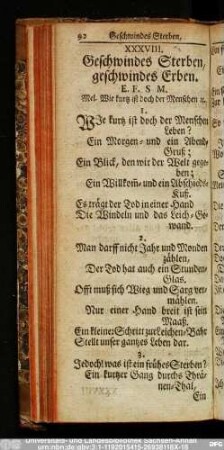 92 Geschwindes Sterben,
XXXVIII.
Geschwindes Sterben,
geschwindes Erben.
E. F. S M.
Mel. Wie kurtz ist doch der Menschen ꝛc.
1.
WIe kurtz ist doch der Menschen
Leben?
Ein Morgen- und ein Abend-
Gruß;
Ein Blick, den wir der Welt gege-
ben;
Ein Willkom̃- und ein Abschieds-
Kuß.
Es trägt der Tod in einer Hand
Die Windeln und das Leich-Ge-
wand.
2.
Man darff nicht Jahr und Monden
zählen,
Der Tod hat auch ein Stunden-
Glas.
Offt muß sich Wieg und Sarg ver-
mählen.
Nur einer Hand breit ist sein
Maaß.
Ein kleiner Schritt zur Leichen-Bahr
Stellt unser gantzes Leben dar.
3.
Jedoch! was ist ein frühes Sterben?
Ein kurtzer Gang durchs Thrä-
nen-Thal,
Ein
Universitäts- und Landesbibliothek Sachsen-Anhalt